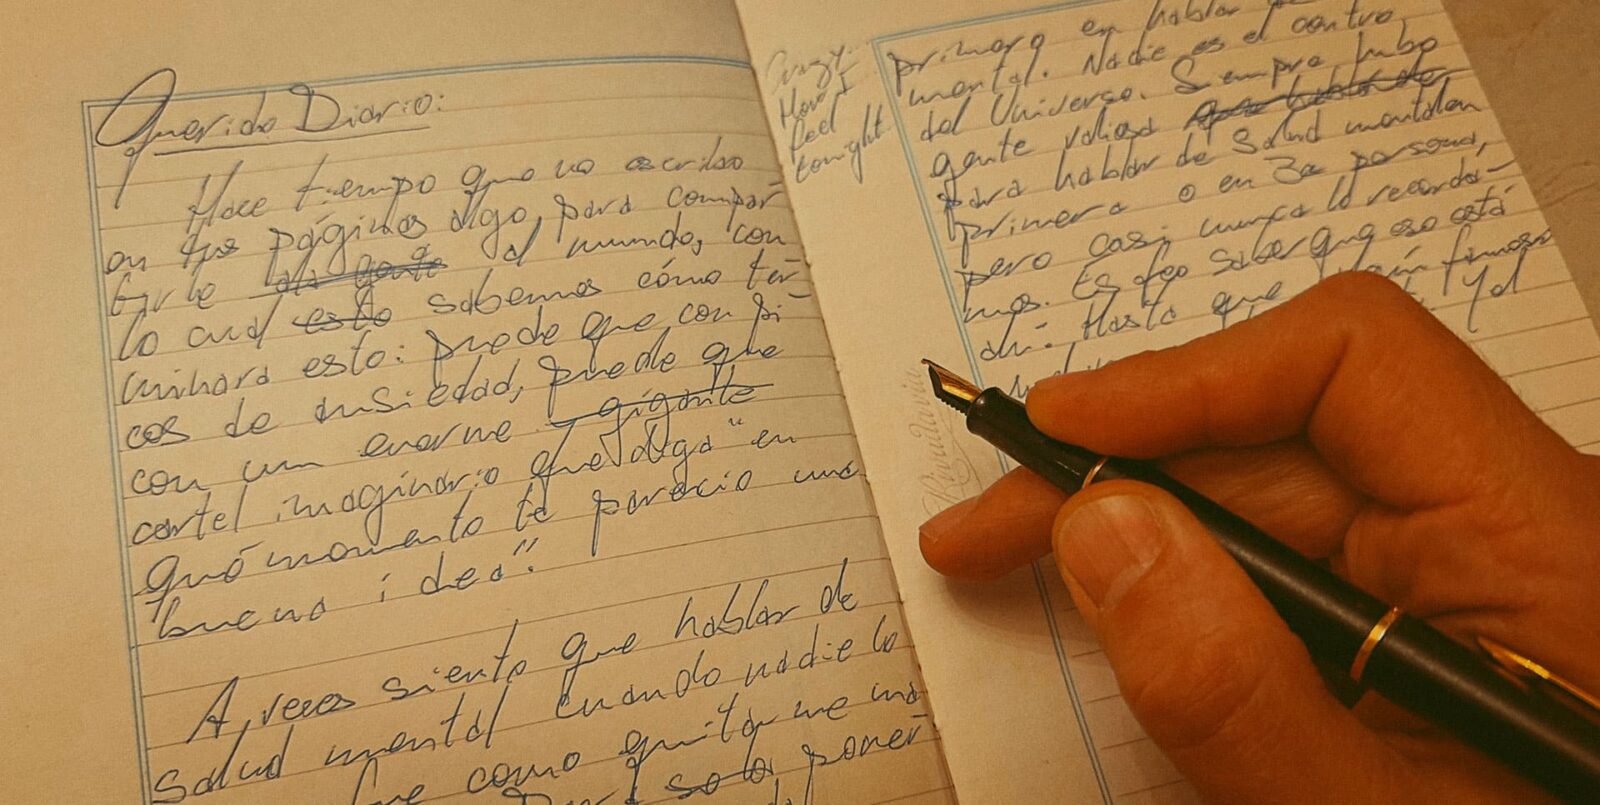 Querido Diario:
Hace tiempo que no escribo
en tus páginas algo, para compar-
tirle a la gente al mundo, con
lo cual esto sabemos cómo ter-
minará esto: puede que con pi-
cos de ansiedad, puede que
con un enorme gigante
cartel imaginario que diga "en
qué momento te pareció una
buena idea".
A veces siento que hablar de
salud mental cuando nadie lo
que como quitarme una
solo poner
Crazy
How I
feel
tonight
primero en hablar
mental. Nadie es el centro
del Universo. Siempre hubo
gente valiosa que hablar de
para hablar de Salud mental en
primera o en 3a persona,
pero casi nunca lo recorda-
mos. Es feo saber que eso está
ahí. Hasta que famoso
Y al
Rivadavia